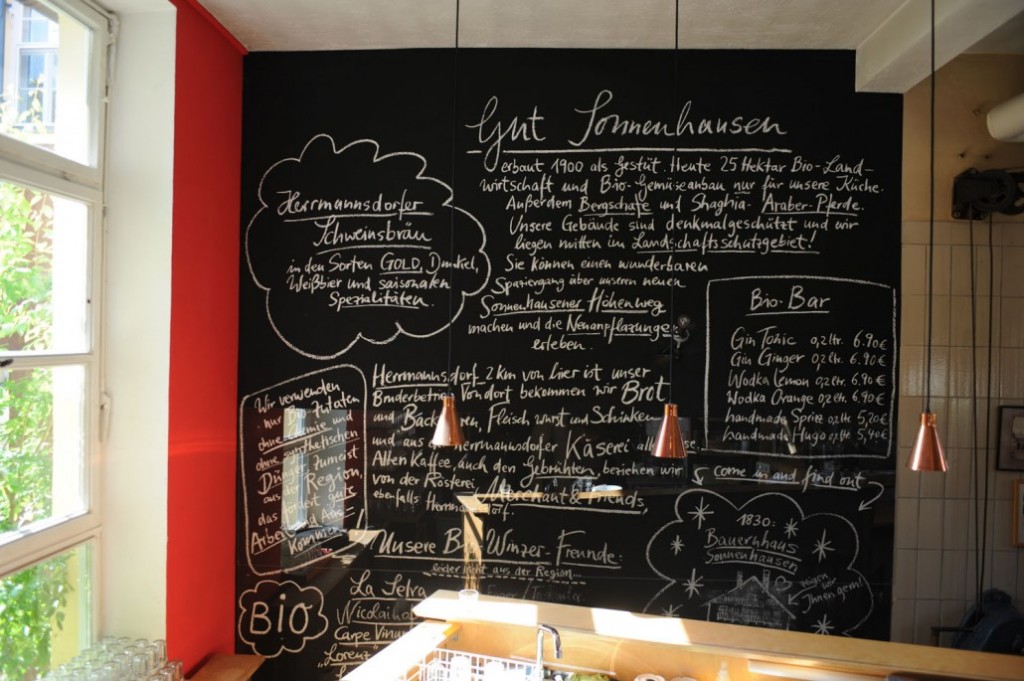 Gut Sonnenhausen
erbaut 1900 als Gestüt. Heute 25 Hektar Bio-Land-
wirtschaft und Bio-Gemüseanbau nur für unsere Küche.
Außerdem Bergschafe und Shaghia-Araber-Pferde.
Unsere Gebäude sind denkmalgeschützt und wir
liegen mitten im Landschaftsschutzgebiet!
Sie können einen wunderbaren
Spaziergang über unseren neuen
Sonnenhausener Höhenweg
machen und die Neuanpflazungen
erleben.
Herrmannsdorfer
Schweinsbräu
in den Sorten GOLD, Dunkel,
Weißbier und saisonalen
Spezialitäten.
Bio-Bar
Gin Tonic 0,2 ltr. 6.90 €
Gin Ginger 0,2 ltr. 6.90 €
Wodka Lemon 0,2 ltr. 6.90 €
Wodka Orange 0,2 ltr. 6.90 €
handmade Spritz 0,2 ltr. 5,20 €
handmade Hugo 0,2 ltr. 5,40 €
come in and find out
Wir verwenden
nur Zutaten
ohne Chemie und
ohne synthetischen
Dünger zumeist
aus der Region,
das fördert gute
Arbeit und
Herrmannsdorf 2 km von hier ist unser
Bruderbetrieb Von dort bekommen wir Brot
und Backwaren, Fleisch, Wurst und Schinken
und aus der Herrmannsdorfer Käserei
Kaffee, auch den Gebrühten, beziehen wir
von der Rösterei,
ebenfalls Merchant & Friends,
Unsere Bio Winzer-Freunde:
leider nicht aus der Region...
La Selva
Carpe
"Lorenz"
BiO
1830:
Bauernhaus
Sonnenhausen
zeigen wir
Ihnen gern!